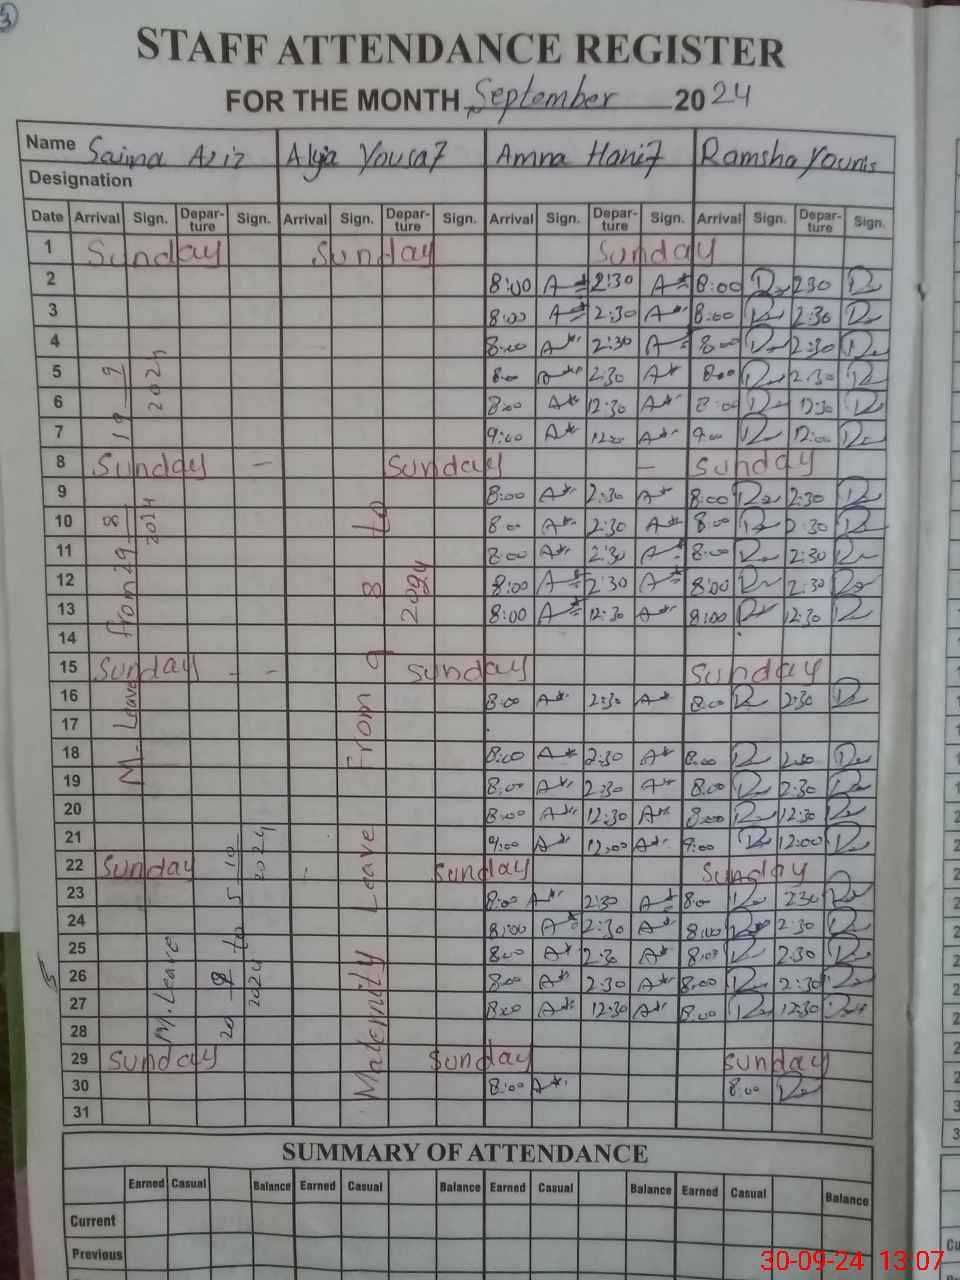 3
STAFF ATTENDANCE REGISTER
FOR THE MONTH September 2024
Name Saima Aziz Alyia Yousaf Amna Hanif Ramsha Younis
Designation
Date Arrival Sign. Depar-ture Sign. Arrival Sign. Depar-ture Sign. Arrival Sign. Depar-ture Sign. Arrival Sign. Depar-ture Sign.
1 Sunday Sunday Sunday
2 8:00 2:30 8:00 2:30
3 8:00 2:30 8:00 2:30
4 8:00 2:30 8:00 2:30
5 8:00 2:30 8:00 2:30
6 8:00 12:30 8:00 12:30
7 9:00 12:00 9:00 12:00
8 Sunday – Sunday – Sunday
9 8:00 2:30 8:00 2:30
10 8:00 2:30 8:00 2:30
11 8:00 2:30 8:00 2:30
12 8:00 2:30 8:00 2:30
13 8:00 12:30 8:00 12:30
14
15 Sunday - - Sunday Sunday
16 8:00 2:30 8:00 2:30
17
18 8:00 2:30 8:00 2:30
19 8:00 2:30 8:00 2:30
20 8:00 12:30 8:00 12:30
21 9:00 12:00 9:00 12:00
22 Sunday Sunday Sunday
23 8:00 2:30 8:00 2:30
24 8:00 2:30 8:00 2:30
25 8:00 2:30 8:00 2:30
26 8:00 2:30 8:00 2:30
27 8:00 12:30 8:00 12:30
28
29 Sunday Sunday Sunday
30 8:00 8:00
31
M. Leave from 29 8 2024 19 9 2024
M. Leave 20 9 2024 to 5 10 2024
Maternity Leave From 9 8 2024 to
SUMMARY OF ATTENDANCE
Earned Casual Balance Earned Casual Balance Earned Casual Balance Earned Casual Balance
Current
Previous
30-09-24 13.07